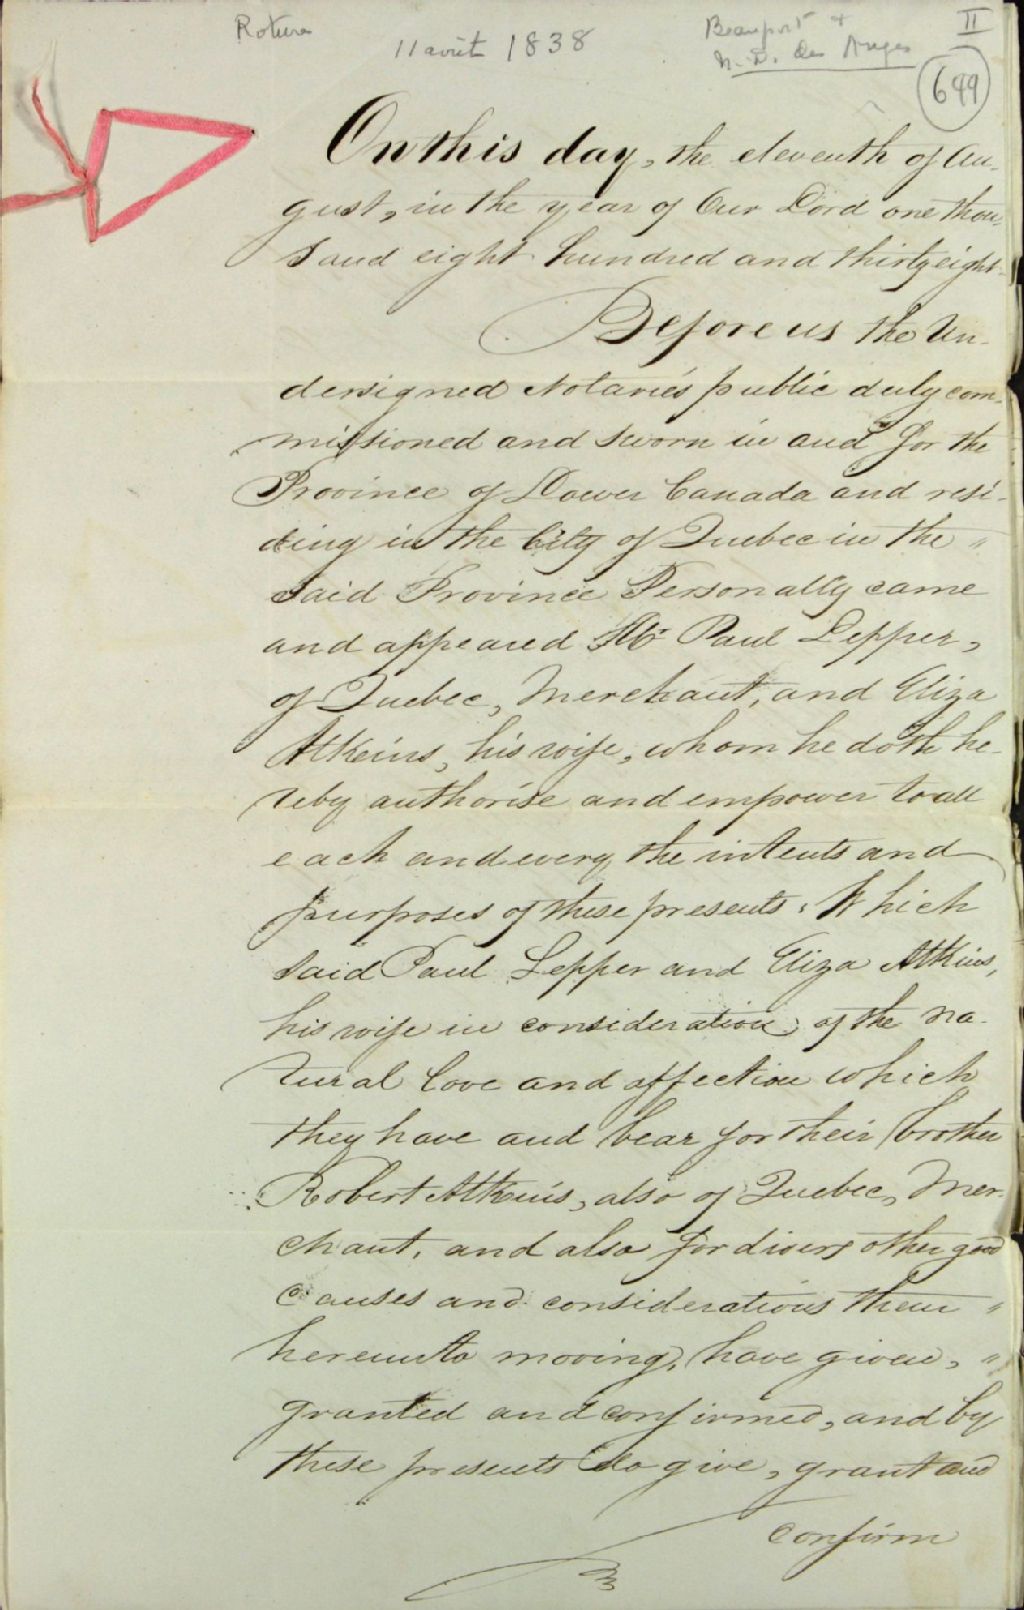 Roture
11 août 1838
Beauport &
N. D. des Anges
II
699
On this day, the eleventh of Au-
gust, in the year of Our Lord one thou-
sand eight hundred and thirty eight.
Before us the Un-
dersigned Notaries public duly com-
missioned and sworn in and for the
Province of Lower Canada and resi-
ding in the City of Quebec in the "
said Province Personally came
and appeared Mr. Paul Lepper,
of Quebec, Merchant, and Eliza
Atkins, his wife, whom he doth he-
reby authorise and empower to all
each and every the intents and
purposes of these presents. Which
said Paul Lepper and Eliza Atkins,
his wife in consideration of the na-
tural love and affection which
they have and bear for their brother
Robert Atkins, also of Quebec, Mer-
chant, and also for divers other good
causes and considerations them "
hereunto moving, have given, "
granted and confirmed, and by
these presents do give, grant and
confirm